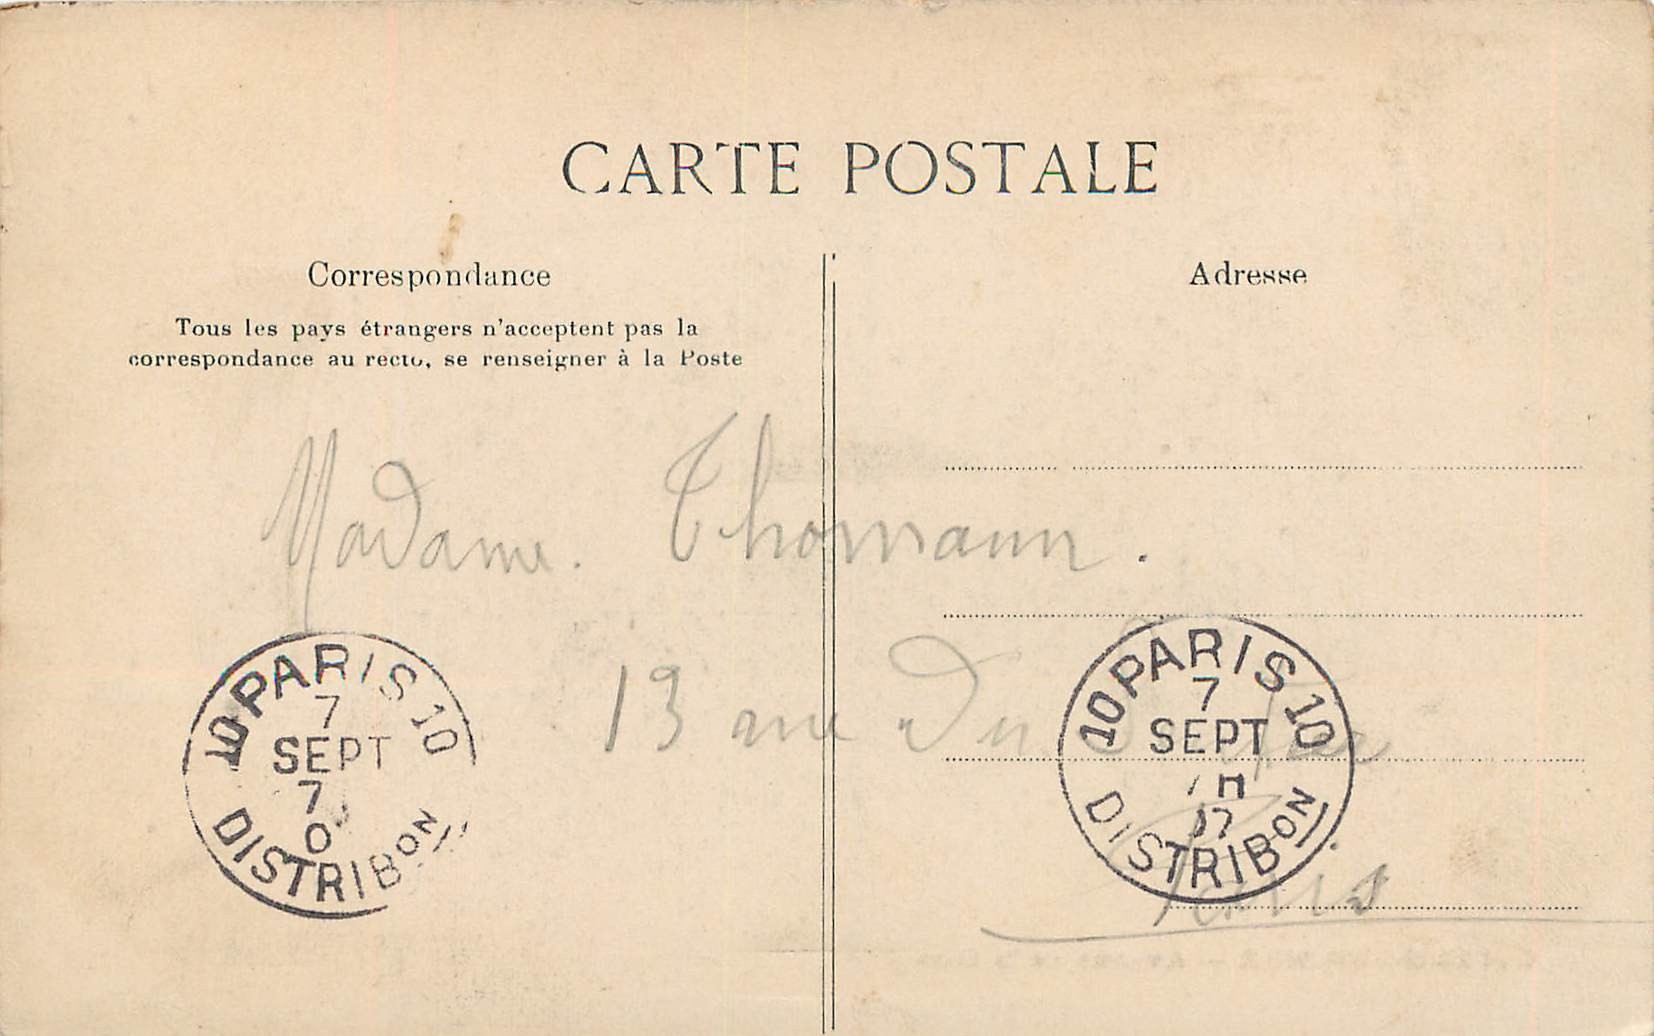 CARTE POSTALE
Correspondance
Tous les pays étrangers n'acceptent pas la
correspondance au recto, se renseigner à la Poste
Adresse
Madame. Thomann.
13 rue du
Paris
10 PARIS 10
7
SEPT
7
0
DISTRIBON
10 PARIS 10
7
SEPT
DISTRIBON